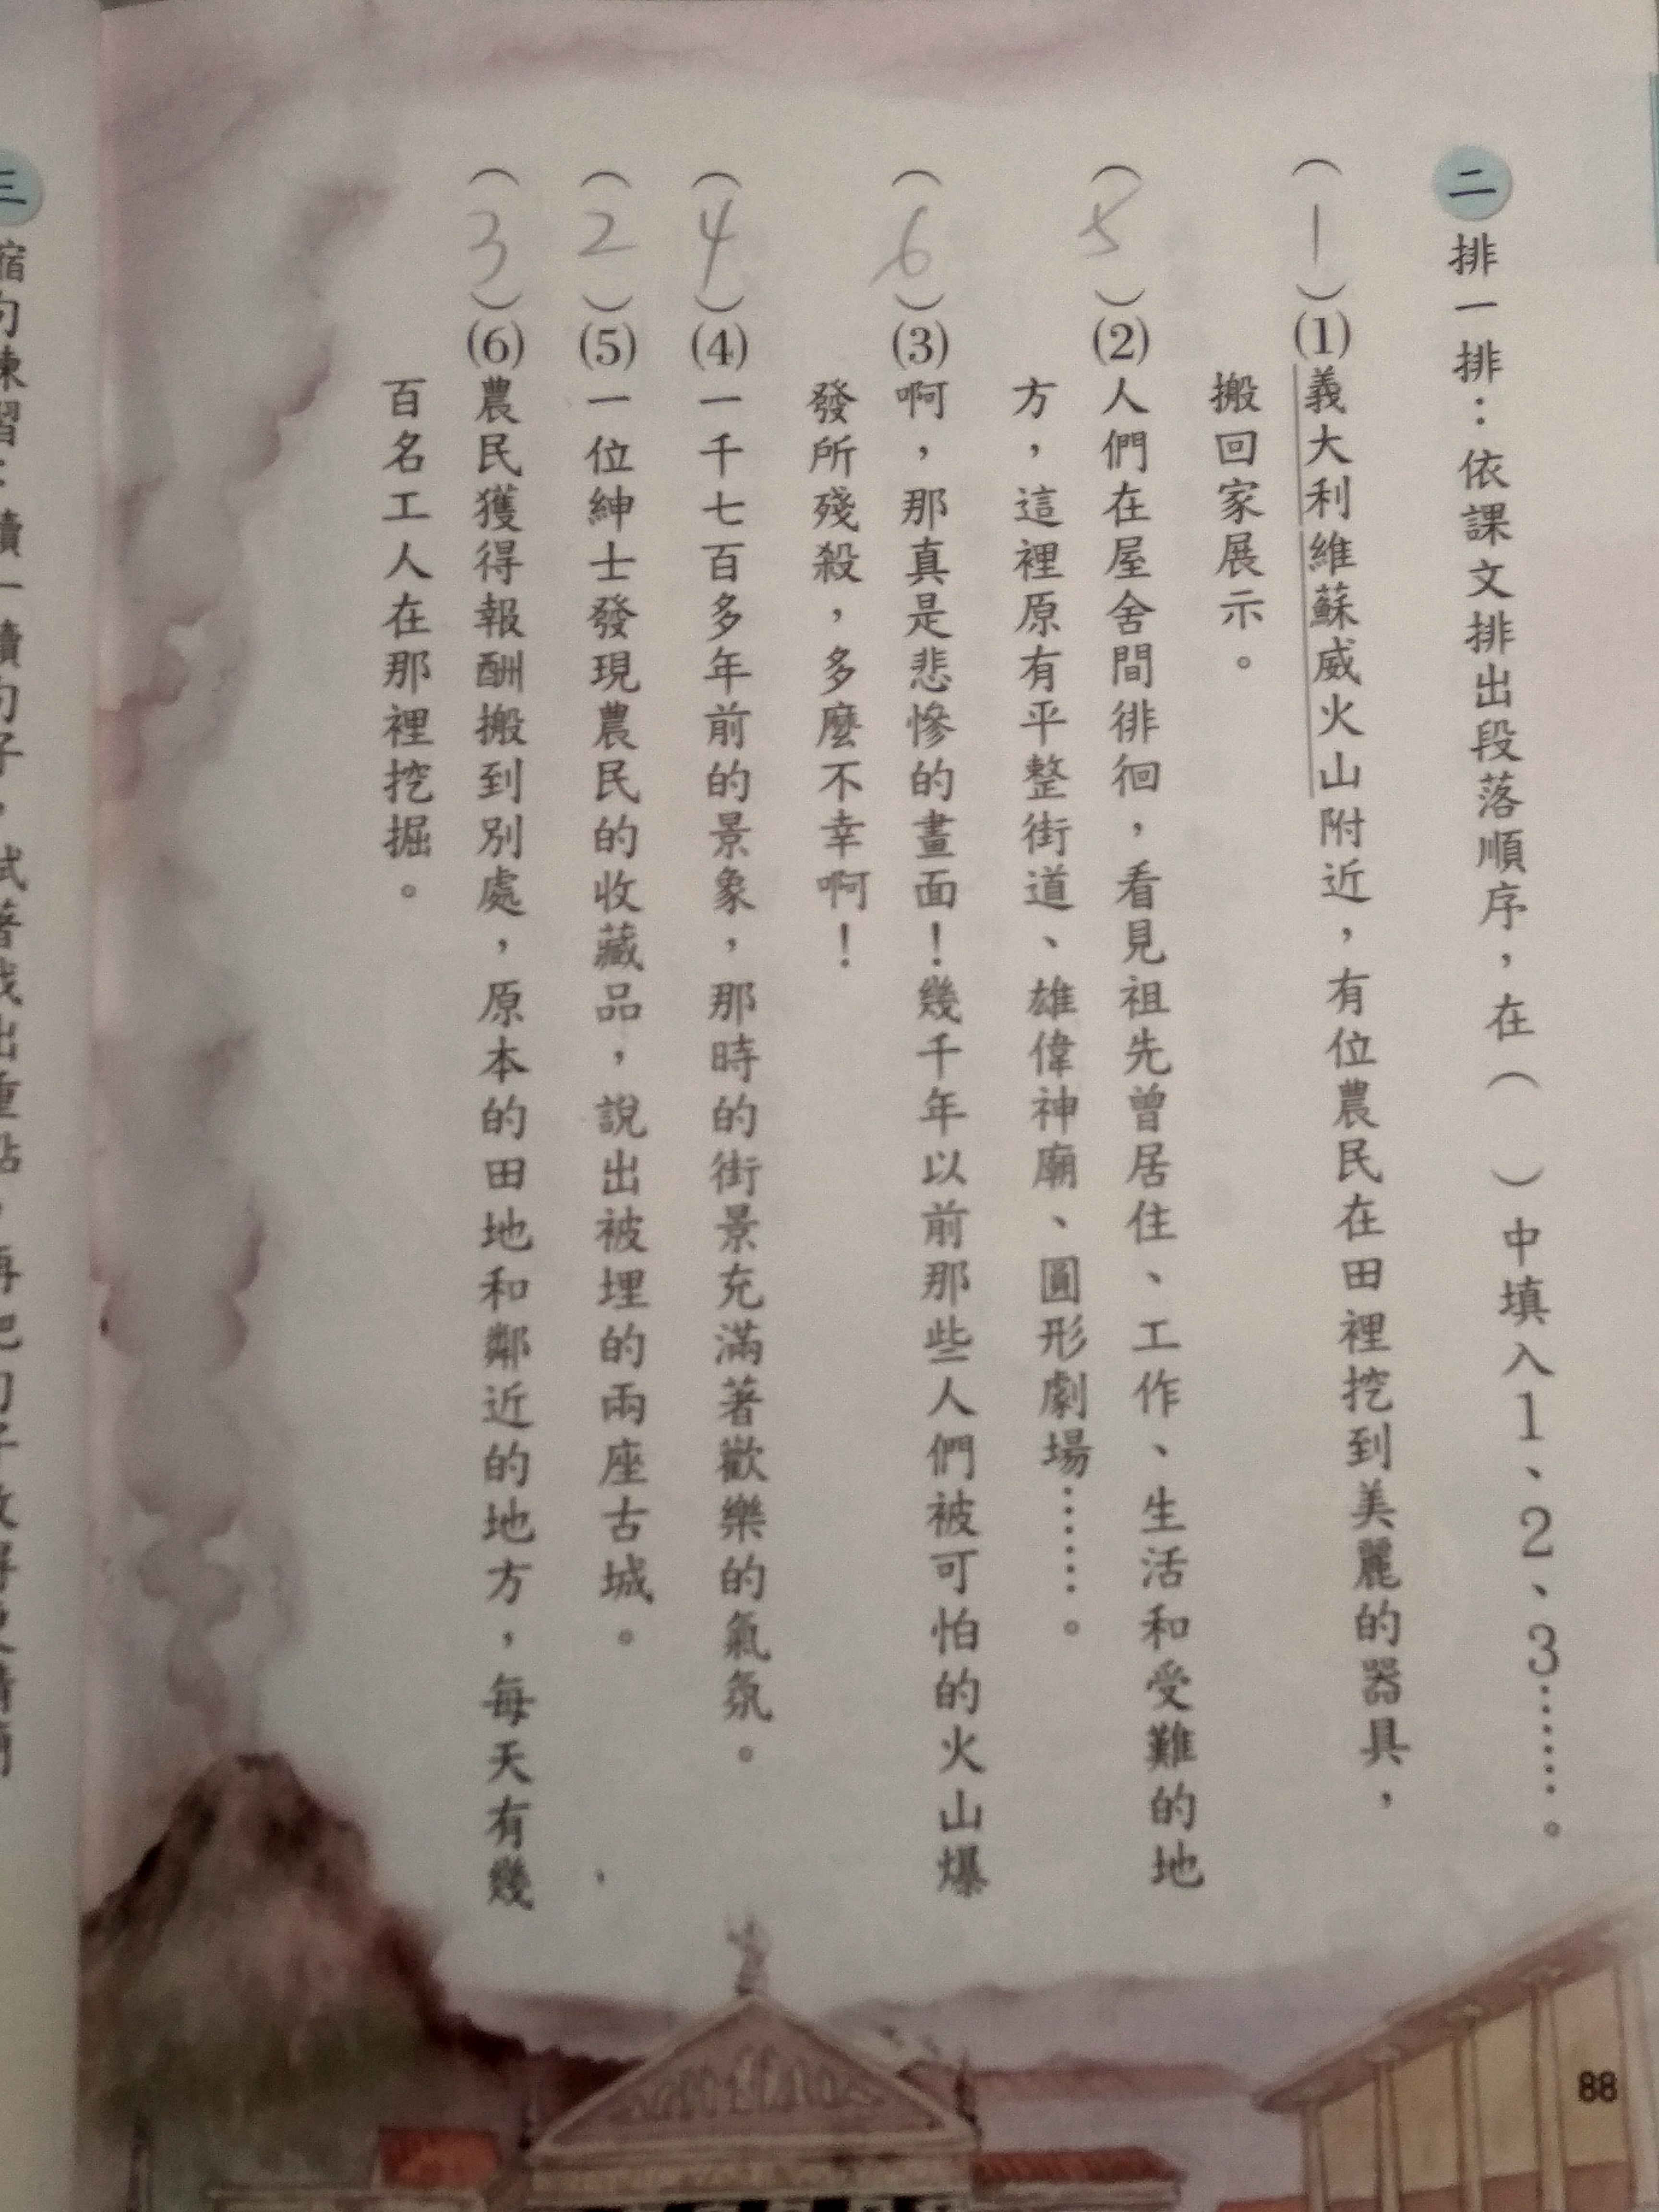 二 排一排：依課文排出段落順序，在（　）中填入1、2、3……。
（1）⑴義大利維蘇威火山附近，有位農民在田裡挖到美麗的器具，
搬回家展示。
（5）⑵人們在屋舍間徘徊，看見祖先曾居住、工作、生活和受難的地
方，這裡原有平整街道、雄偉神廟、圓形劇場……。
（6）⑶啊，那真是悲慘的畫面！幾千年以前那些人們被可怕的火山爆
發所殘殺，多麼不幸啊！
（4）⑷一千七百多年前的景象，那時的街景充滿著歡樂的氣氛。
（2）⑸一位紳士發現農民的收藏品，說出被埋的兩座古城。
（3）⑹農民獲得報酬搬到別處，原本的田地和鄰近的地方，每天有幾
百名工人在那裡挖掘。
88